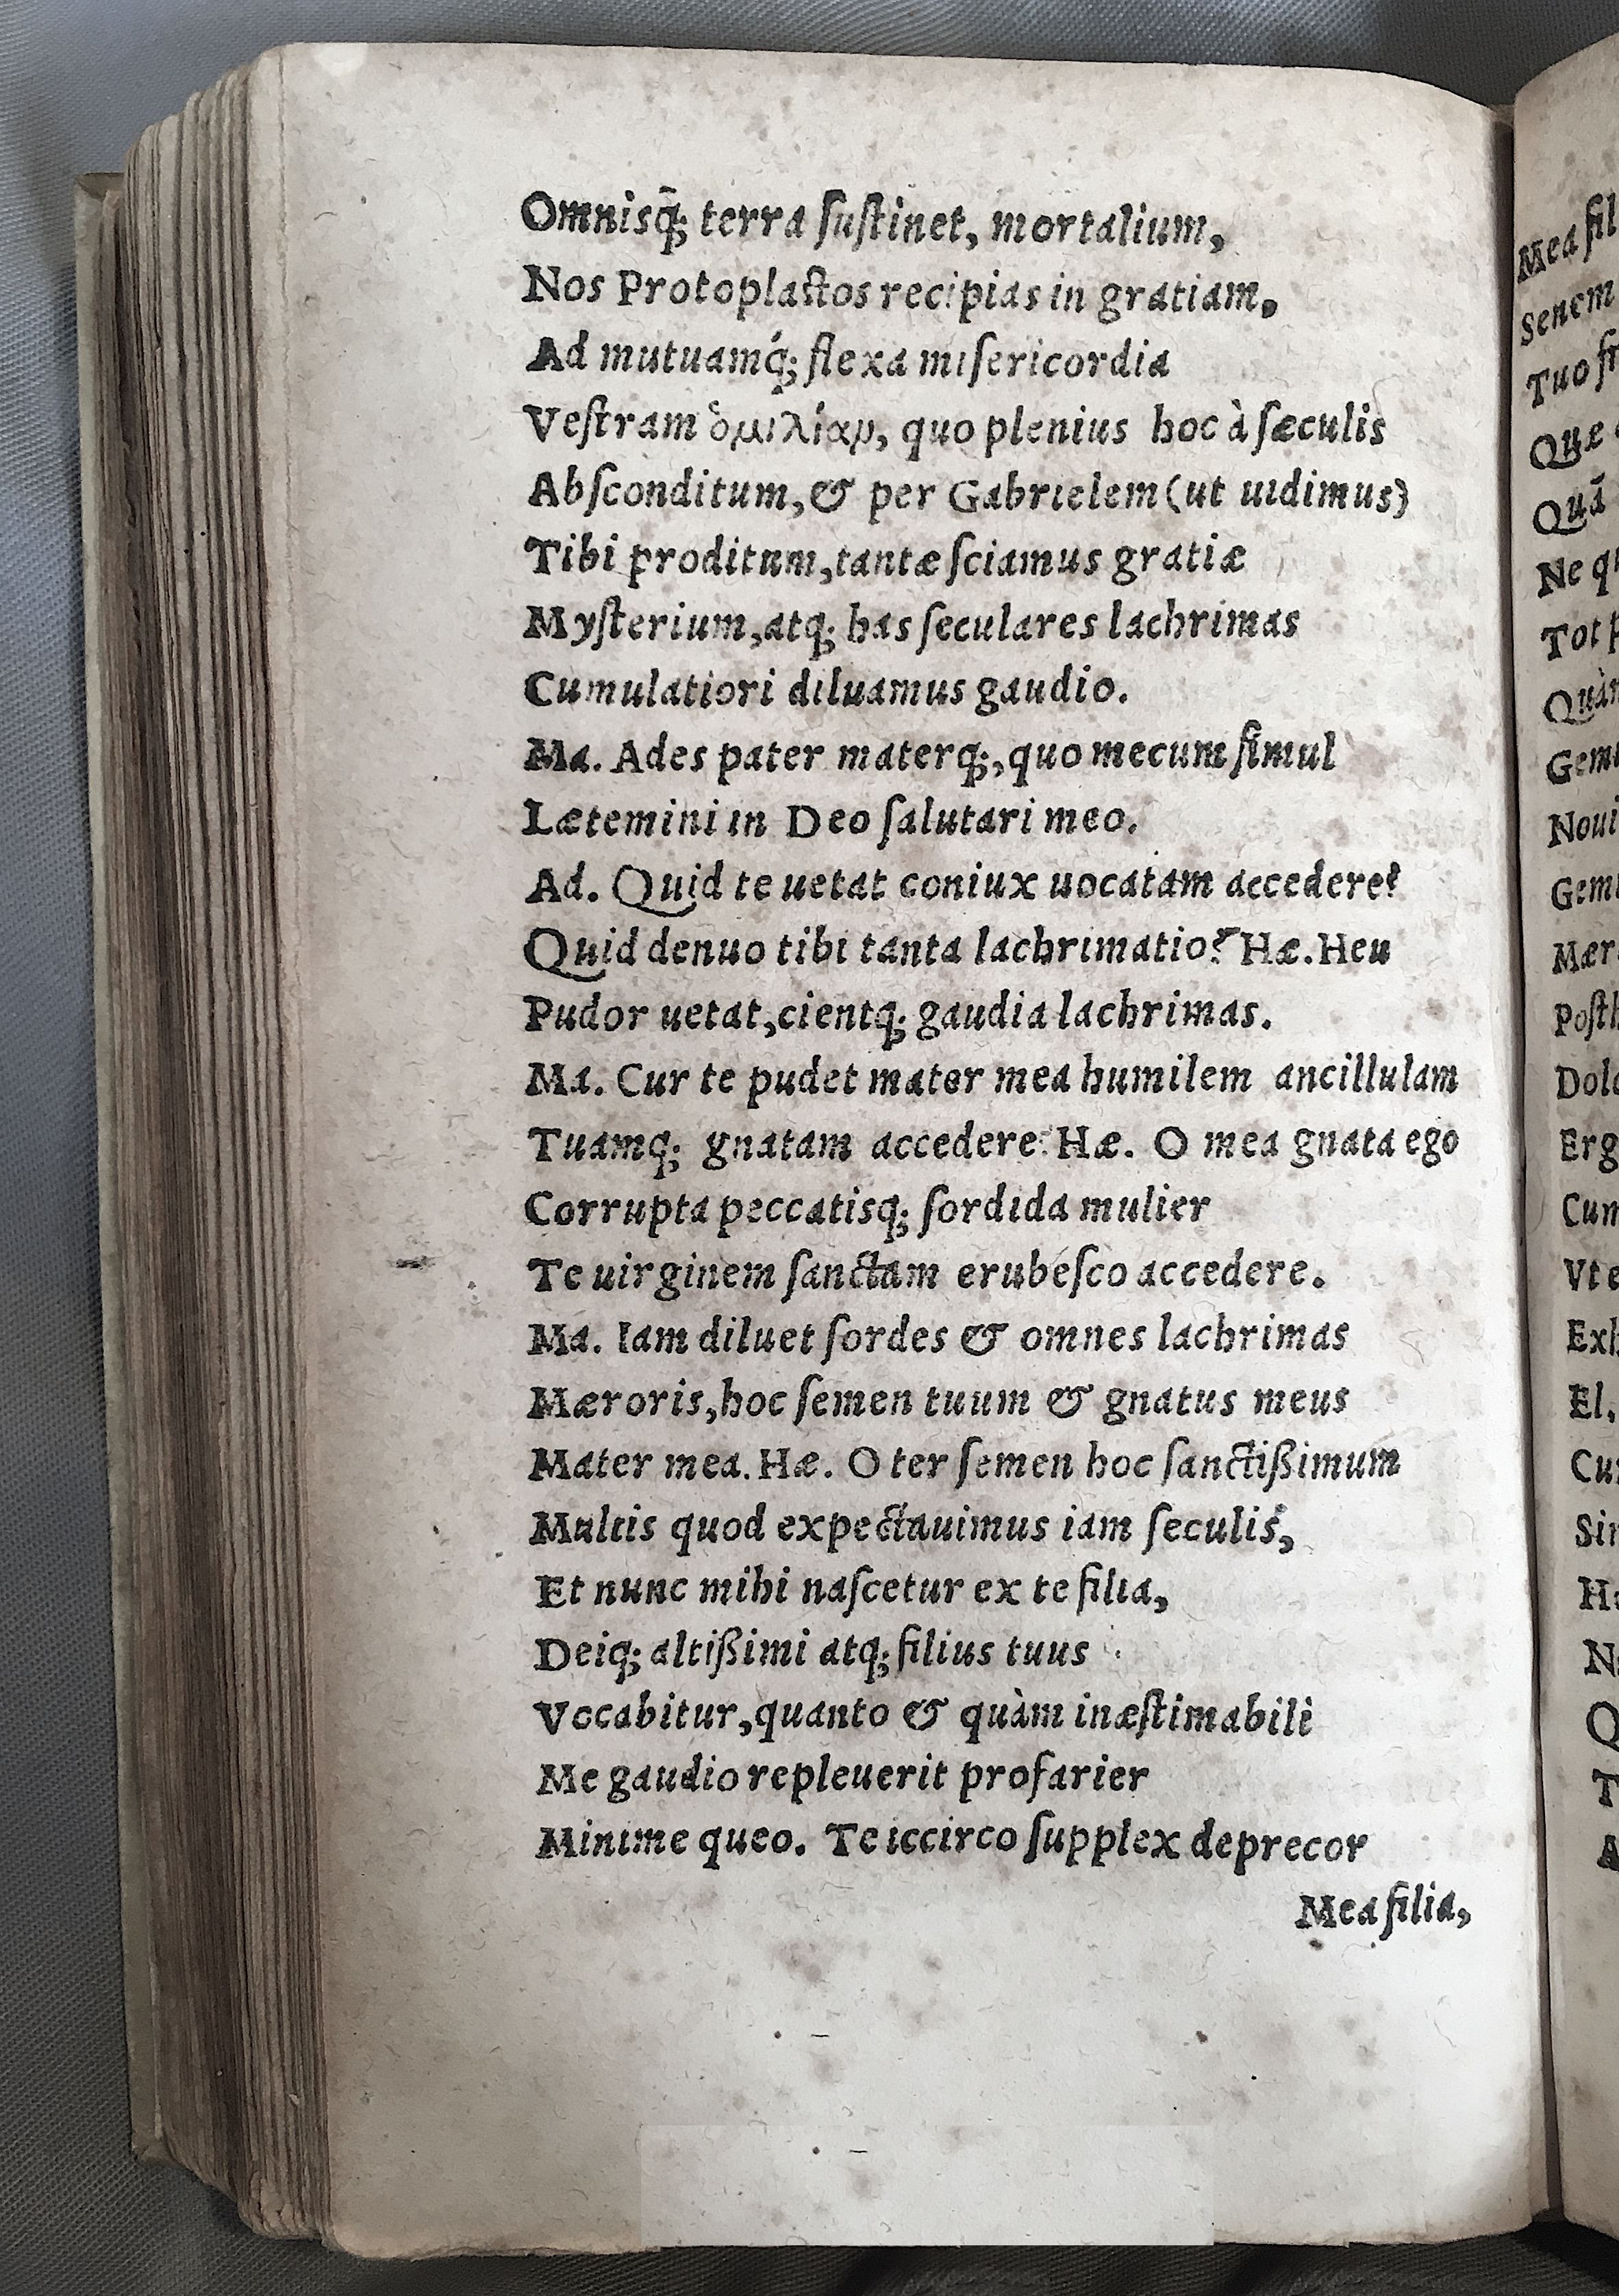 Omnisq̃; terra ſuſtinet, mortalium,
Nos Protoplaſtos recipias in gratiam,
Ad mutuamq́; flexa miſericordia
Veſtram ὁμιλίαν, quo plenius hoc à ſæculis
Abſconditum, & per Gabrielem (ut uidimus)
Tibi proditum, tantæ ſciamus gratiæ
Myſterium, atq; has ſeculares lachrimas
Cumulatiori diluamus gaudio.
Ma. Ades pater materq;, quo mecum ſimul
Lætemini in Deo ſalutari meo.
Ad. Quid te uetat coniux uocatam accedere?
Quid denuo tibi tanta lachrimatio? Hæ. Heu
Pudor uetat, cientq; gaudia lachrimas.
Ma. Cur te pudet mater mea humilem ancillulam
Tuamq; gnatam accedere? Hæ. O mea gnata ego
Corrupta peccatisq; ſordida mulier
Te uirginem ſanctam erubeſco accedere.
Ma. Iam diluet ſordes & omnes lachrimas
Mæroris, hoc ſemen tuum & gnatus meus
Mater mea. Hæ. O ter ſemen hoc ſanctißimum
Multis quod expectauimus iam ſeculis,
Et nunc mihi naſcetur ex te filia,
Deiq; altißimi atq; filius tuus
Vocabitur, quanto & quàm inæſtimabili
Me gaudio repleuerit profarier
Minime queo. Te iccirco ſupplex deprecor
Mea filia,
Mea fil
Senem
Tuo fr
Quæ
Quã
Ne qu
Tot p
Quàm
Gemi
Noui
Gem
Mær
Poſth
Dolo
Erg
Cum
Vt e
Exh
El.
Cu
Sin
H
N
Q
T
A